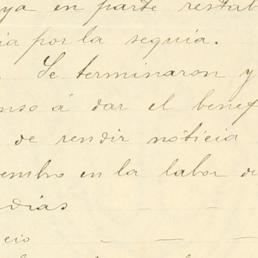 ya en parte restab
ia por la sequia.
Se terminaron y
onso á dar el benef
de rendir noticia
embro en la labor de
dias
cio